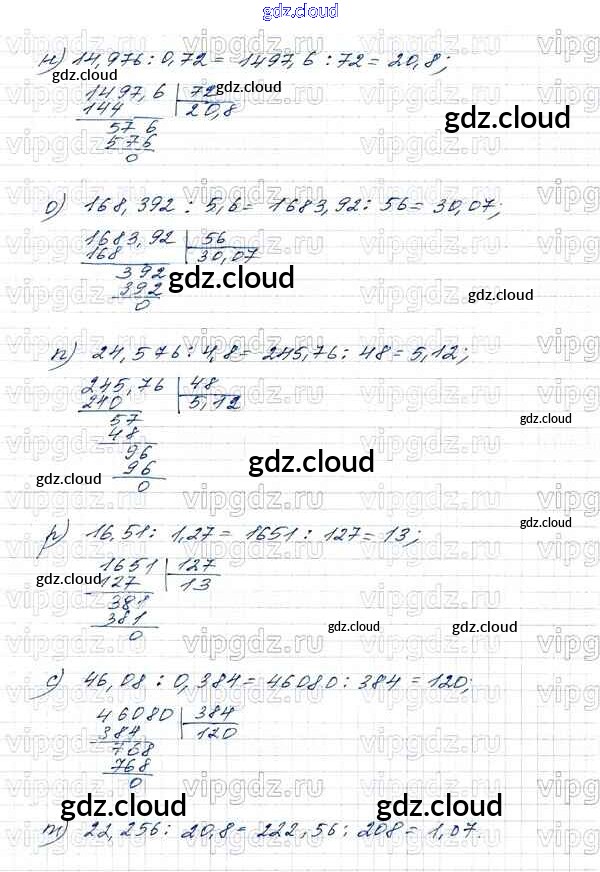 gdz.cloud
н) 14,976 : 0,72 = 1497,6 : 72 = 20,8;
gdz.cloud
gdz.cloud
1497,6 | 72
144 20,8
gdz.cloud
57 6
57 6
0
о) 168,392 : 5,6 = 1683,92 : 56 = 30,07;
1683,92 | 56
168 30,07
gdz.cloud
gdz.cloud
3 92
392
0
п) 24,576 : 4,8 = 245,76 : 48 = 5,12;
gdz.cloud
245,76 | 48
240 5,12
gdz.cloud
57
48
96
gdz.cloud
96
gdz.cloud
0
р) 16,51 : 1,27 = 1651 : 127 = 13;
gdz.cloud
1651 | 127
gdz.cloud
127 13
381
381
0
gdz.cloud
gdz.cloud
с) 46,08 : 0,384 = 46080 : 384 = 120;
46080 | 384
384 120
768
768
0
gdz.cloud
gdz.cloud
т) 22,256 : 20,8 = 222,56 : 208 = 1,07.
vipgdz.ru